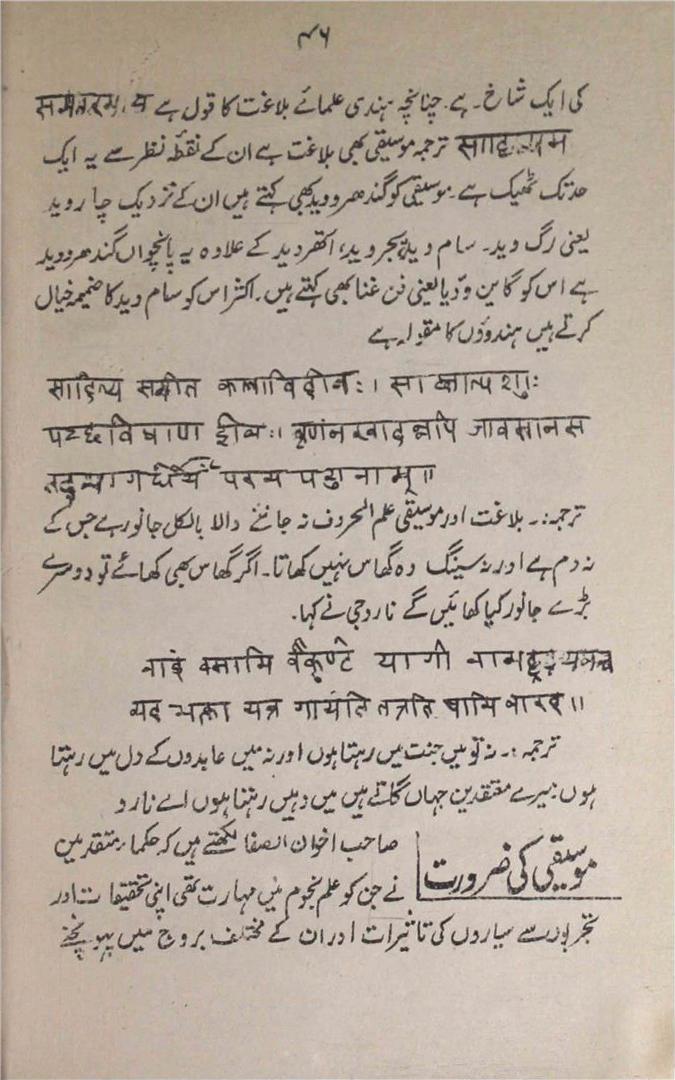 ۴۶
کی ایک شاخ ہے۔ چنانچہ ہندی علمائے بلاغت کا قول ہے
साहित्यम ترجمہ موسیقی بھی بلاغت ہے ان کے نقطۂ نظر سے یہ ایک
حد تک ٹھیک ہے۔ موسیقی کو گندھرو وید بھی کہتے ہیں ان کے نزدیک چار وید
یعنی رگ وید۔ سام وید، یجر وید، اتھر وید کے علاوہ یہ پانچواں گندھرو وید
ہے اس کو گاین ودیا یعنی فن غنا بھی کہتے ہیں۔ اکثر اس کو سام وید کا ضمیمہ خیال
کرتے ہیں ہندوؤں کا مقولہ ہے
साहित्य सङ्गीत कलाविहीनः। साक्षात्पशुः
पुच्छविषाण हीनः। तृणंनखादन्नपि जीवमानस
तद्भागधेयं परमं पशूनाम्॥
ترجمہ:۔ بلاغت اور موسیقی علم الحروف نہ جاننے والا بالکل جانور ہے جس کے
نہ دم ہے اور نہ سینگ وہ گھاس نہیں کھاتا۔ اگر گھاس بھی کھائے تو دوسرے
بڑے جانور کیا کھائیں گے ناردجی نے کہا۔
नाहं वसामि वैकुण्ठे योगी नाम हृदयेनच
मद भक्ता यत्र गायंति तत्रति ष्ठामि नारद॥
ترجمہ:۔ نہ تو میں جنت میں رہتا ہوں اور نہ میں عابدوں کے دل میں رہتا
ہوں؛ میرے معتقدین جہاں گاتے ہیں میں وہیں رہتا ہوں اے نارد
موسیقی کی ضرورت
صاحب اخوان الصفا لکھتے ہیں کہ حکماء متقدمین
نے جن کو علم نجوم میں مہارت تھی اپنی تحقیقات اور
تجربوں سے سیاروں کی تاثیرات اور ان کے مختلف بروج میں پہونچنے